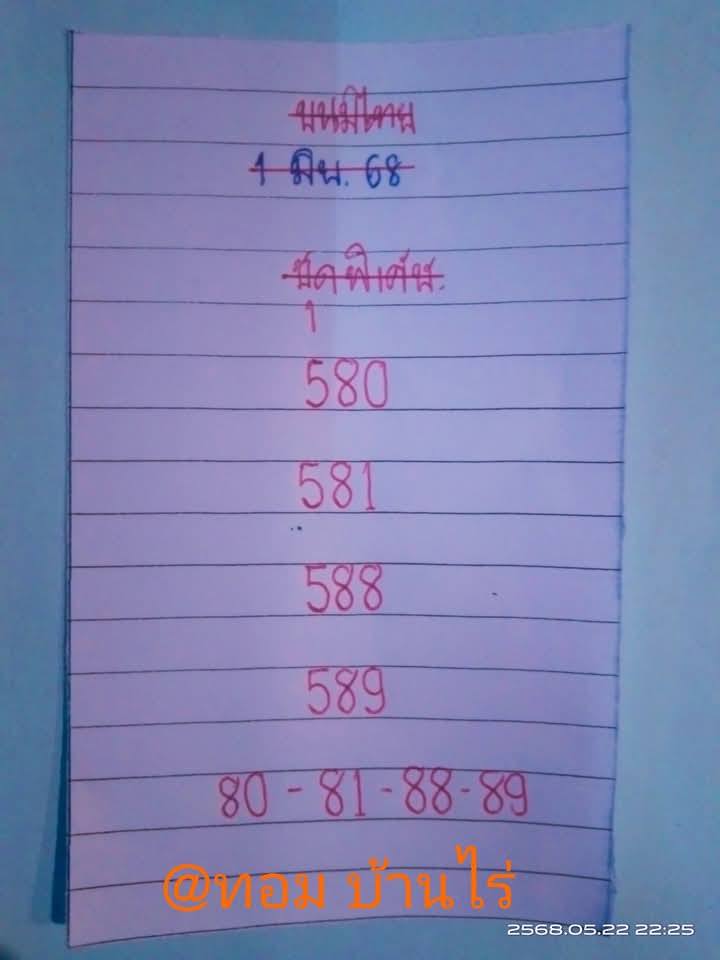 1 มิย. 68
ชุดพิเศษ.
580
581
588
589
80 - 81 - 88 - 89
@ทอม บ้านไร่
2568.05.22 22:25